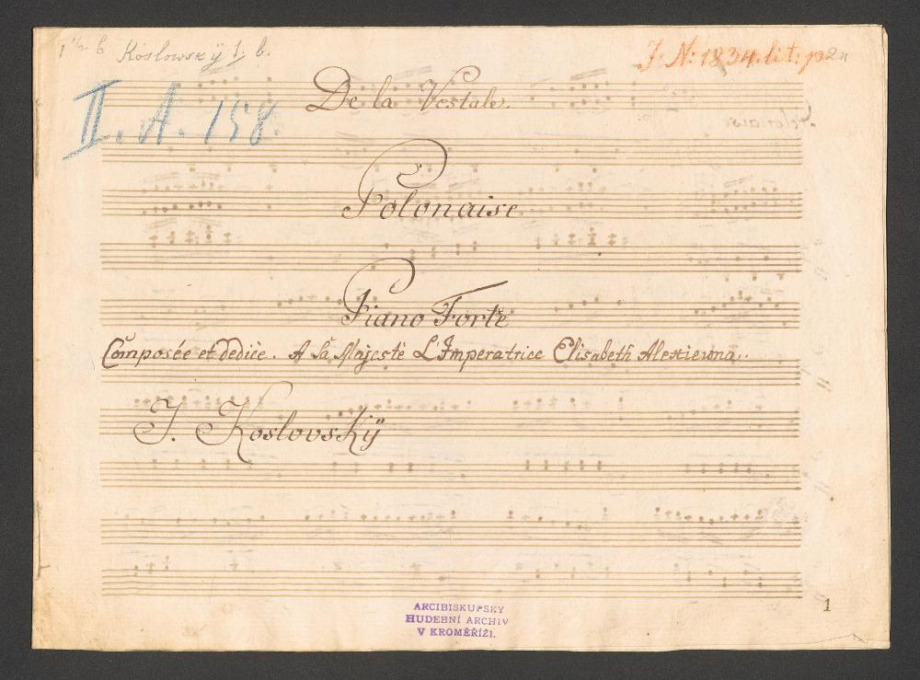 Koslowsky J. b.
J. N: 1834. lit: p
II. A. 158.
De la Vestale.
Polonaise
Piano Forte
Composée et dediée. A Sa Majesté L'Imperatrice Elisabeth Alexiewna.
J. Koslovskÿ
ARCIBISKUPSKÝ
HUDEBNÍ ARCHIV
V KROMĚŘÍŽI.
1